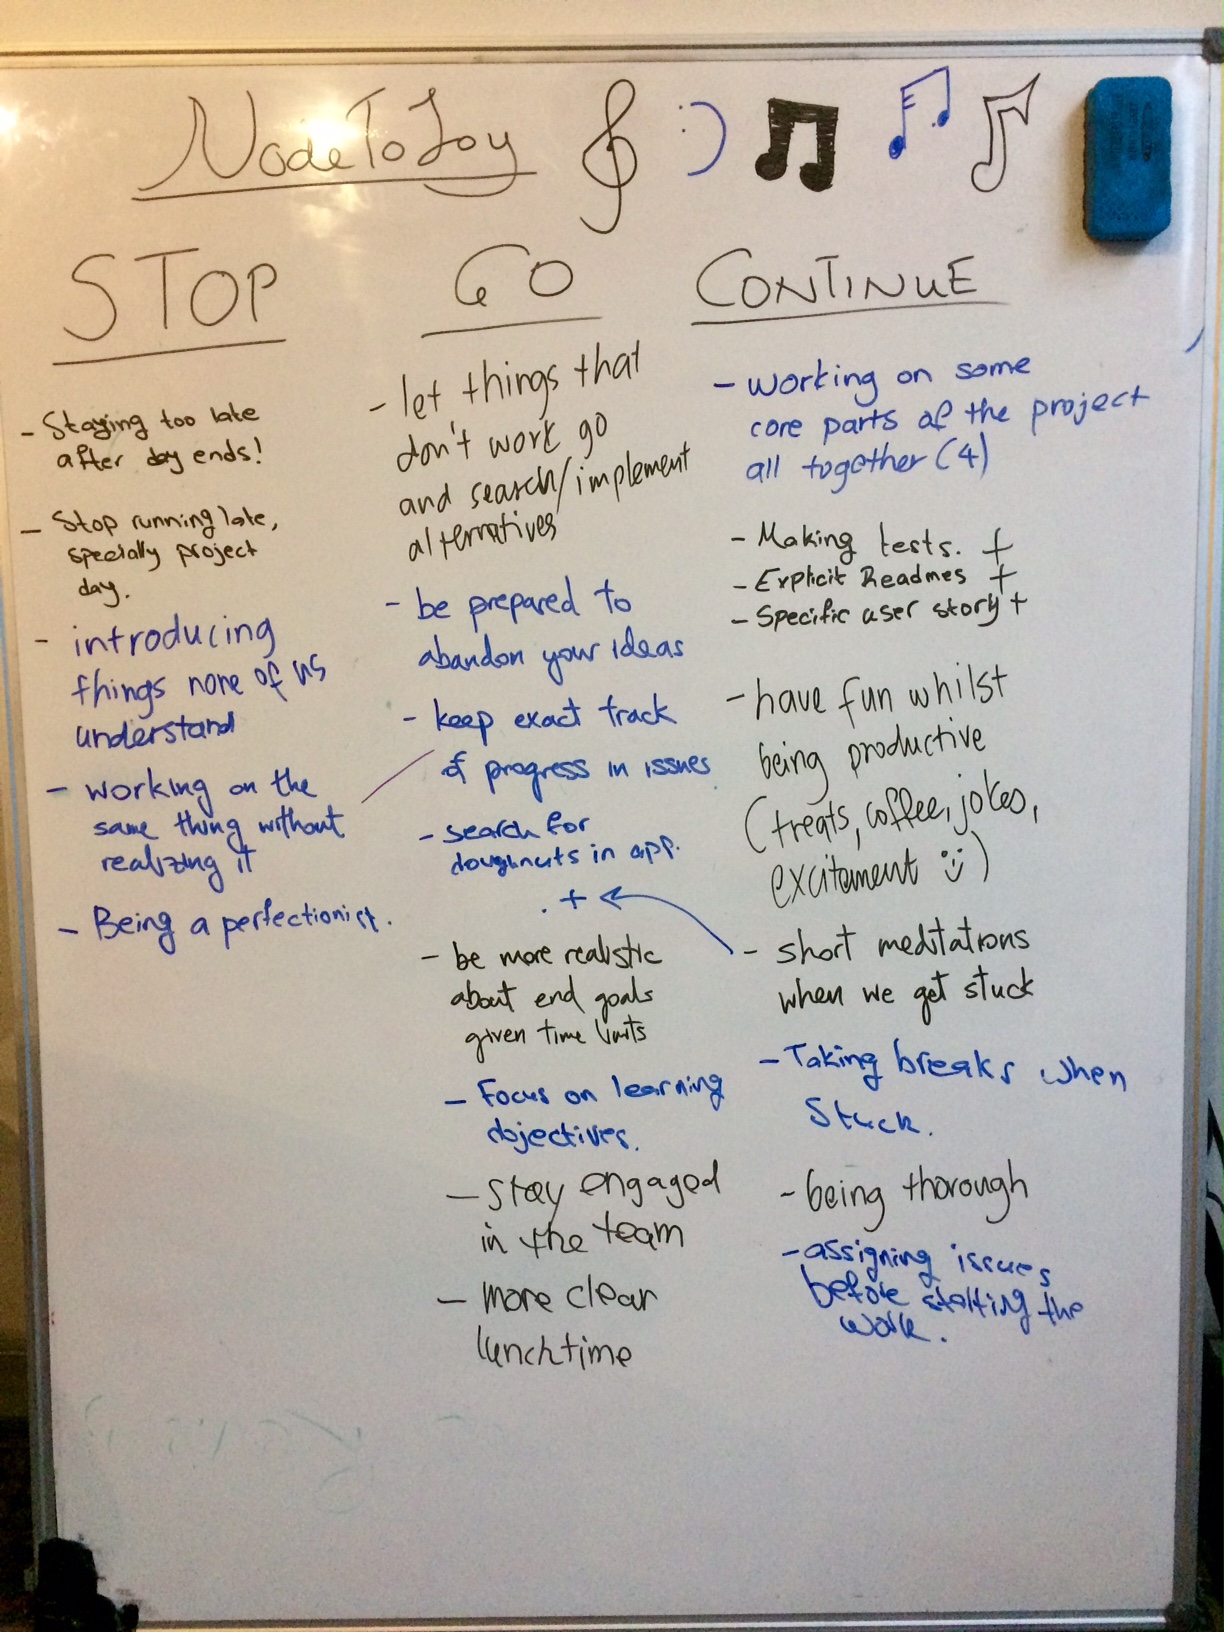 NodeToJoy
STOP
- Staying too late
after day ends!
- Stop running late,
specially project
day.
- introducing
things none of us
understand
- working on the
same thing without
realizing it
- Being a perfectionist.
GO
- let things that
don't work go
and search/implement
alternatives
- be prepared to
abandon your ideas
- keep exact track
of progress in issues
- search for
doughnuts in app.
+
- be more realistic
about end goals
given time limits
- Focus on learning
objectives.
- stay engaged
in the team
- more clear
lunchtime
CONTINUE
- working on some
core parts of the project
all together (4)
- Making tests. +
- Explicit Readmes +
- Specific user story +
- have fun whilst
being productive
(treats, coffee, jokes,
excitement :))
- short meditations
when we get stuck
- Taking breaks when
Stuck.
- being thorough
- assigning issues
before starting the
work.